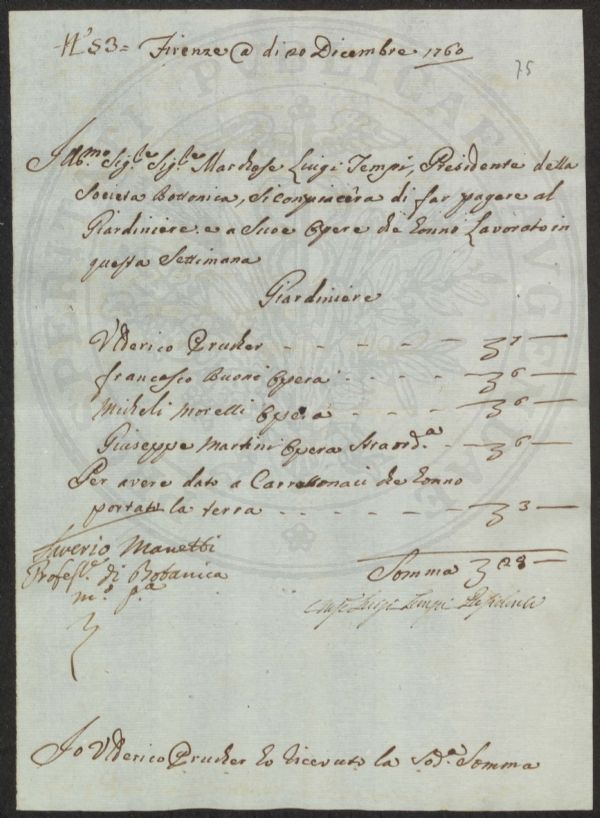 N.° 83 = Firenze @ di 20 Dicembre 1760
75
Ill.mo Sig.re Sig.re Marchese Luigi Tempi, Presidente della
Societa Bottonica, Si conpiacerà di far pagere al
Giardiniere e a Suoe Opere che Eonno Lavorato in
questa Settimana
Giardiniere
Ulderico Prucker - - - - - - 7 —
francesco Buoni Opera - - - - 6 —
Micheli Morelli Opera - - - - 6 —
Giuseppe Martini Opera Straord.a - - 6 —
Per avere dato a Carrettonaci che Eonno
portato la terra - - - - - - 3 —
Saverio Manetti
Profess.e di Botanica
m.o p.a
Somma 28 —
Luigi Tempi Presidente
Io Ulderico Prucker Eo Ricevuto la Sod.a Somma